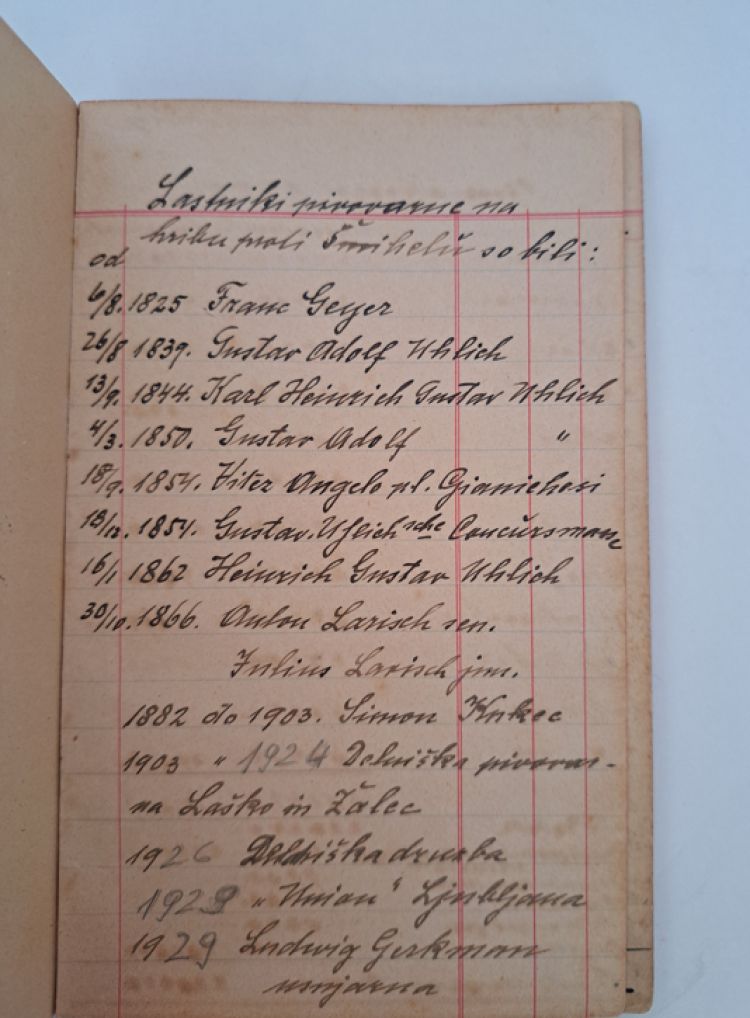 Lastniki pivovarne na
hribu proti Šmihelu so bili:
od
6/8. 1825 Franc Geyer
26/8 1839. Gustav Adolf Uhlich
13/9. 1844. Karl Heinrich Gustav Uhlich
4/3. 1850. Gustav Adolf "
18/9. 1854. Vitez Angelo pl. Gianichesi
13/12. 1854. Gustav Uhlich'sche
16/1 1862 Heinrich Gustav Uhlich
30/10. 1866. Anton Larisch sen.
Julius Larisch jun.
1882 do 1903. Simon Kukec
1903 " 1924 Delniška pivovar-
na Laško in Žalec
1926 Delniška družba
1928 „Union“ Ljubljana
1929 Ludwig Gerkman
usnjarna